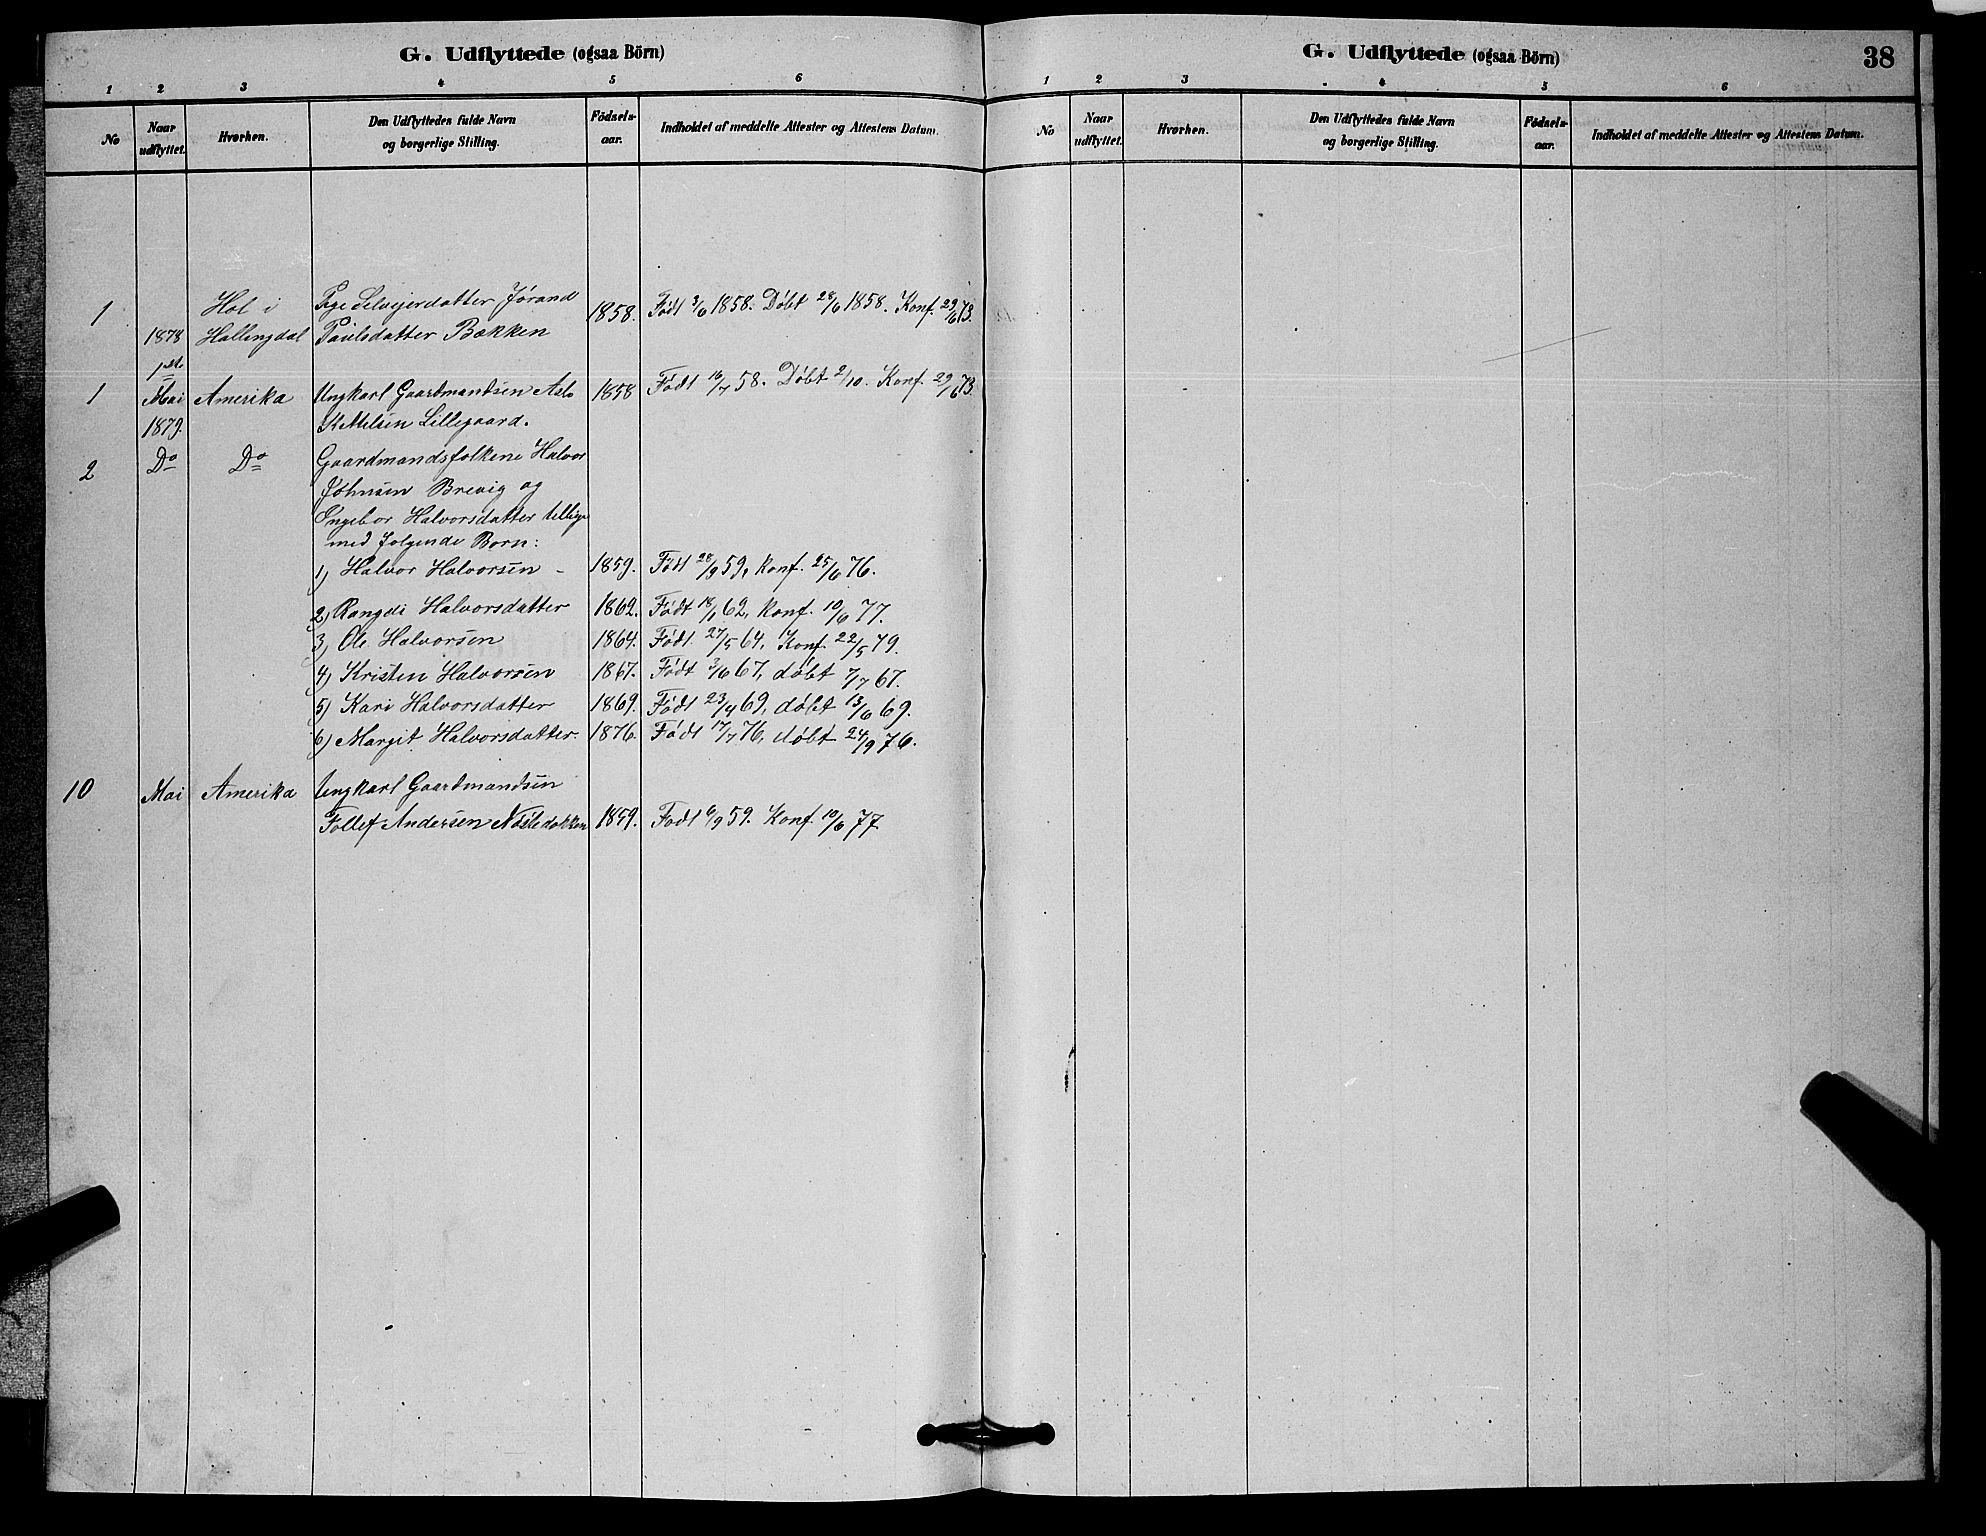 G. Udflyttede (ogsaa Börn)
1 2 3 4 5 6
No
Naar udflyttet.
Hvorhen.
Den Udflyttedes fulde Navn og borgerlige Stilling.
Fødsels-aar.
Indholdet af meddelte Attester og Attestens Datum.
1 1878 Hol i Hallingdal
Pige Selveierdatter Jørand
Paulsdatter Bækken
1858. Født 3/6 1858. Døbt 28/6 1858. Konf. 29/6 73.
1 1st Mai 1879. Amerika
Ungkarl Gaardmandsen Aslo
Kittelsen Lillegaard.
1858 Født 16/7 58. Døbt 2/10. Konf. 29/6 73.
2 Do Do
Gaardmandsfolkene Halvor
Johnsen Brevig og
Ingebor Halvorsdatter tillige
med følgende Børn:
1) Halvor Halvorsen - 1859. Født 28/9 59, Konf. 25/6 76.
2) Rangdi Halvorsdatter 1862. Født 18/1 62, Konf. 10/6 77.
3) Ole Halvorsen 1864. Født 27/5 64, Konf. 22/5 79.
4) Kristen Halvorsen 1867. Født 3/6 67, døbt 7/7 67.
5) Kari Halvorsdatter 1869. Født 23/4 69, døbt 13/6 69.
6) Margit Halvorsdatter. 1876. Født 17/7 76, døbt 24/9 76.
10 Mai Amerika Ungkarl Gaardmandsen
Tollef Andersen Nøstedokken 1859. Født 6/9 59. Konf. 10/6 77
G. Udflyttede (ogsaa Börn)
38
1 2 3 4 5 6
No
Naar udflyttet.
Hvorhen.
Den Udflyttedes fulde Navn og borgerlige Stilling.
Fødsels-aar.
Indholdet af meddelte Attester og Attestens Datum.